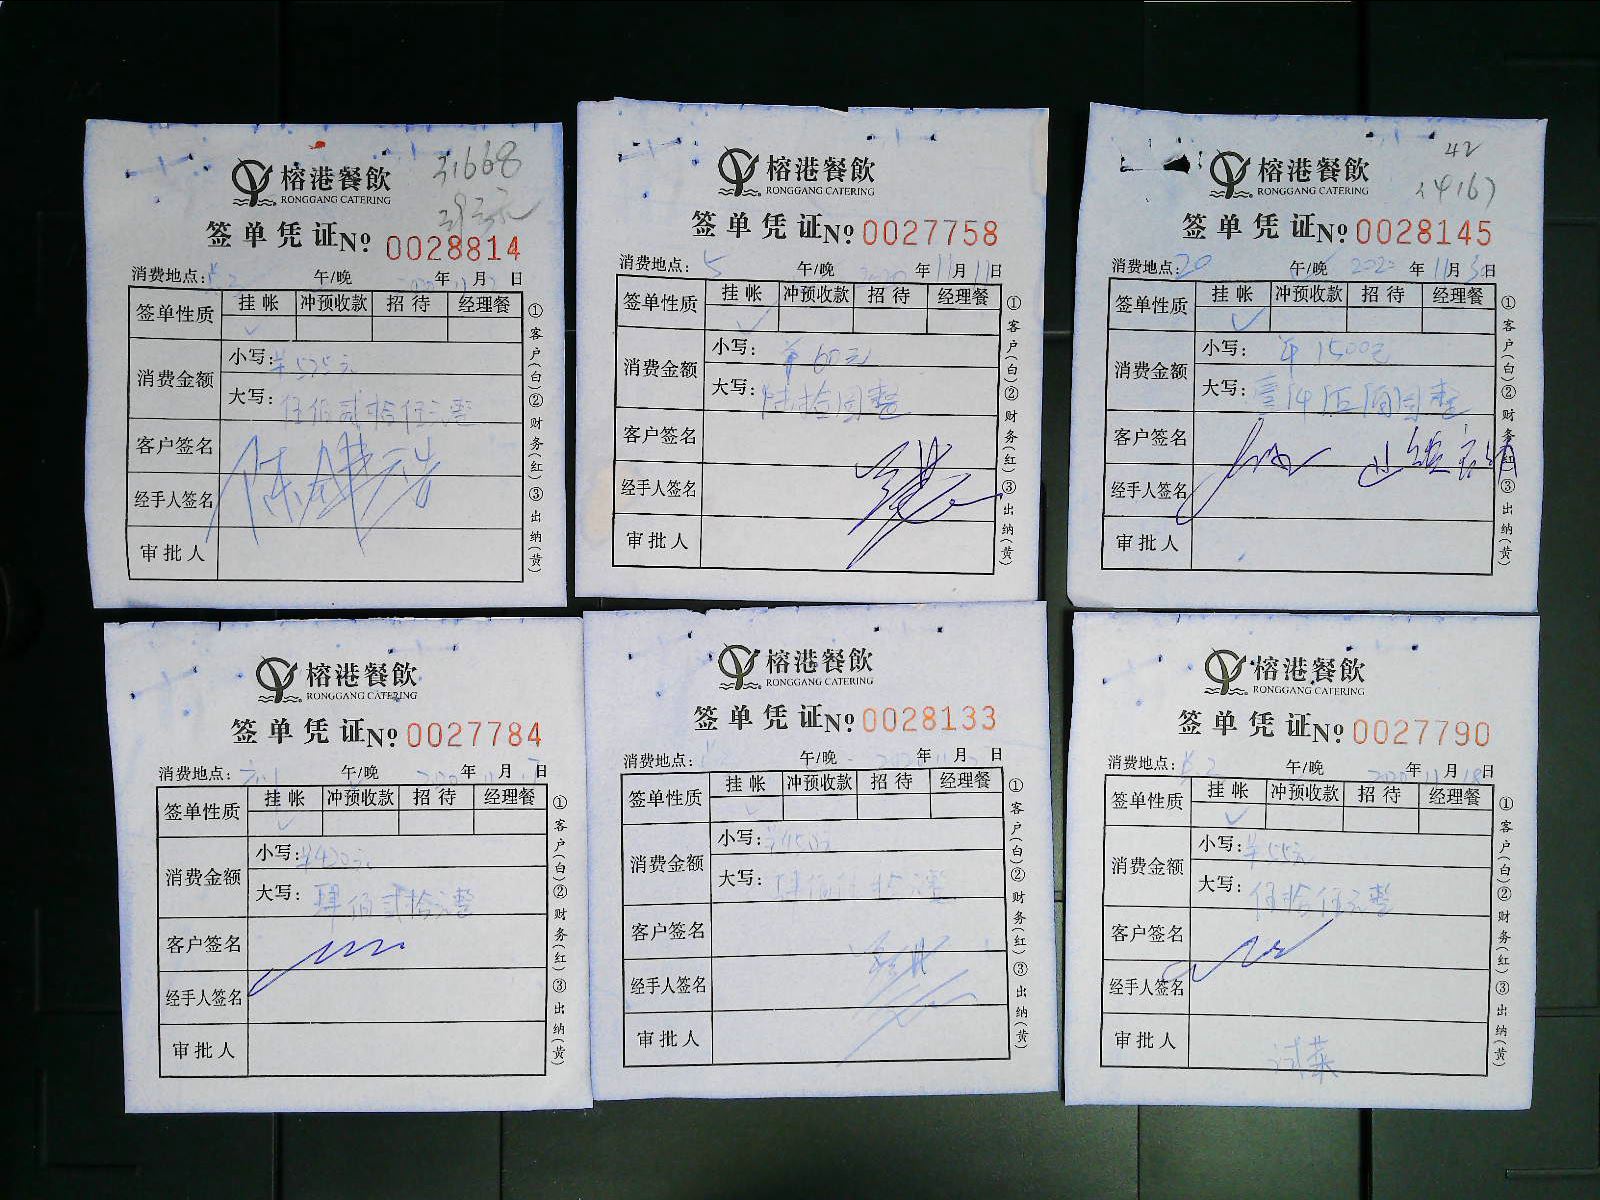 榕港餐飲
RONGGANG CATERING
31668
签单凭证№ 0028814
消费地点: 午/晚 年 月 日
签单性质 挂帐 冲预收款 招待 经理餐
✓
消费金额 小写: ¥525元
大写: 伍佰贰拾伍元整
客户签名
经手人签名
审批人
①客户(白)②财务(红)③出纳(黄)
榕港餐飲
RONGGANG CATERING
签单凭证№ 0027758
消费地点: 5 午/晚 2020年11月11日
签单性质 挂帐 冲预收款 招待 经理餐
✓
消费金额 小写: ¥60元
大写: 陆拾圆整
客户签名
经手人签名
审批人
①客户(白)②财务(红)③出纳(黄)
42
榕港餐飲
RONGGANG CATERING
签单凭证№ 0028145
消费地点: 20 午/晚 2020年11月 日
签单性质 挂帐 冲预收款 招待 经理餐
✓
消费金额 小写: 1500元
大写: 壹仟伍佰圆整
客户签名
经手人签名
审批人
①客户(白)②财务(红)③出纳(黄)
榕港餐飲
RONGGANG CATERING
签单凭证№ 0027784
消费地点: 午/晚 年 月 日
签单性质 挂帐 冲预收款 招待 经理餐
✓
消费金额 小写: ¥420元
大写: 肆佰贰拾元整
客户签名
经手人签名
审批人
①客户(白)②财务(红)③出纳(黄)
榕港餐飲
RONGGANG CATERING
签单凭证№ 0028133
消费地点: 午/晚 年 月 日
签单性质 挂帐 冲预收款 招待 经理餐
✓
消费金额 小写: ¥450元
大写: 肆佰伍拾元整
客户签名
经手人签名
审批人
①客户(白)②财务(红)③出纳(黄)
榕港餐飲
RONGGANG CATERING
签单凭证№ 0027790
消费地点: 午/晚 2020年11月18日
签单性质 挂帐 冲预收款 招待 经理餐
✓
消费金额 小写: ¥55元
大写: 伍拾伍元整
客户签名
经手人签名
审批人 试菜
①客户(白)②财务(红)③出纳(黄)